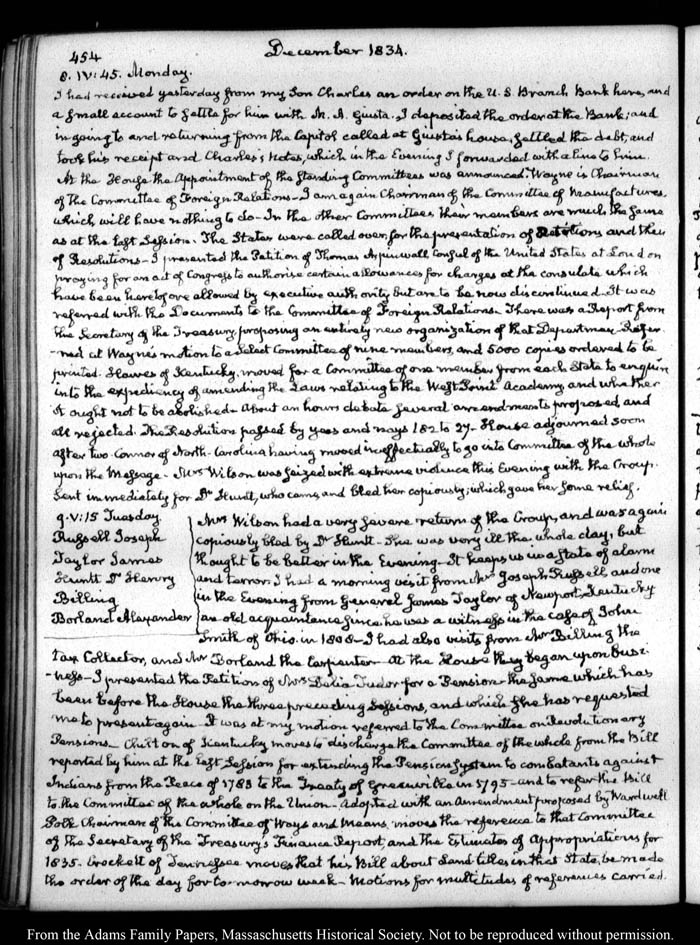 454
December 1834.
8. IV:45. Monday.
I had received yesterday from my Son Charles an order on the U. S. Branch Bank here, and
a small account to settle for him with M. A. Giusta. I deposited the order at the Bank; and
in going to and returning from the Capitol called at Giusta's house, settled the debt, and
took his receipt and Charles's Notes, which in the Evening I forwarded with a line to him.
At the House the Appointment of the Standing Committees was announced. Wayne is Chairman
of the Committee of Foreign Relations— I am again Chairman of the Committee of Manufactures
which will have nothing to do— In the other Committees, their members are much the same
as at the last Session. The States were called over, for the presentation of Petitions and then
of Resolutions— I presented the Petition of Thomas Aspinwall Consul of the United States at London
praying for an act of Congress to authorise certain allowances for charges at the consulate which
have been heretofore allowed by executive authority but are to be now discontinued. It was
referred with the Documents to the Committee of Foreign Relations. There was a Report from
the Secretary of the Treasury, proposing an entirely new organization of that Department. Refer
-red at Wayne's motion to a Select Committee of nine members, and 5000 copies ordered to be
printed. Hawes of Kentucky, moved for a Committee of one member from each State to enquire
into the expediency of amending the Laws relating to the West Point Academy, and whether
it ought not to be abolished— About an hours debate several amendments proposed, and
all rejected. The Resolution passed by yeas and nays 182 to 27— House adjourned soon
after two Connor of North-Carolina having moved ineffectually to go into Committee of the whole
upon the Message— Mrs Wilson was seized with extreme violence this Evening with the Croup.
Sent immediately for Dr Huntt, who came, and bled her copiously; which gave her some relief.
9. V:15 Tuesday.
Russell Joseph
Taylor James
Huntt Dr Henry
Billing
Borland Alexander
Mrs Wilson had a very severe return of the Croup, and was again
copiously bled by Dr Huntt— She was very ill the whole day, but
thought to be better in the Evening— It keeps us in a state of alarm
and terror. I had a morning visit from Mr Joseph Russell, and one
in the Evening from General James Taylor of Newport, Kentucky
an old acquaintance since he was a witness in the case of John
Smith of Ohio, in 1808— I had also visits from Mr Billing the
tax Collector, and Mr Borland the Carpenter— At the House they began upon busi
-ness— I presented the Petition of Mrs Delia Tudor for a Pension the same which has
been before the House the three preceding Sessions, and which she has requested
me to present again— It was at my motion referred to the Committee on Revolutionary
Pensions— Chilton of Kentucky moves to discharge the Committee of the whole from the Bill
reported by him at the last Session for extending the Pension System to combatants against
Indians from the Peace of 1783 to the Treaty of Greenville in 1795— and to refer the Bill
to the Committee of the whole on the Union— Adopted with an Amendment proposed by Wardwell
Polk Chairman of the Committee of Ways and Means, moves the reference to that Committee
of the Secretary of the Treasury's Finance Report, and the Estimates of Appropriations for
1835. Crockett of Tennessee moves that his Bill about Land titles in that State, be made
the order of the day for to-morrow week— Motions for multitudes of references carried.
From the Adams Family Papers, Massachusetts Historical Society. Not to be reproduced without permission.